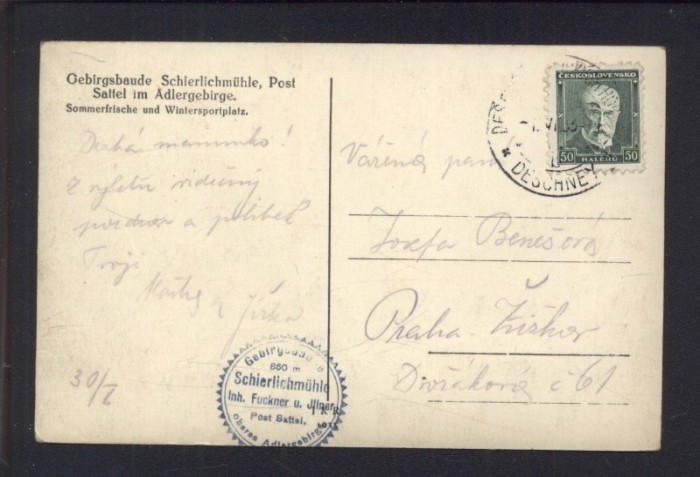 Gebirgsbaude Schierlichmühle, Post
Sattel im Adlergebirge.
Sommerfrische und Wintersportplatz.
Drahá maminko!
Z výletu srdečný
pozdrav a polibek
Tvoji
a Jirka
30/
Vážená paní
Josefa Benešová
Praha-Žižkov
č 61
ČESKOSLOVENSKO
50 HALÉŘŮ 50
DESCHNEY
Gebirgsbaude
860 m
Schierlichmühle
Inh. Fuckner u.
Post Sattel,
oberes Adlergebirge